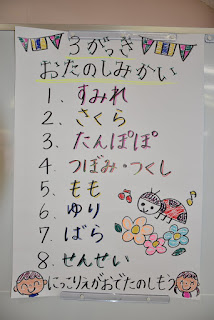 3がっき
おたのしみかい
1、すみれ
2、さくら
3、たんぽぽ
4、つぼみ・つくし
5、もも
6、ゆり
7、ばら
8、せんせい
にっこりえがおでたのしもう